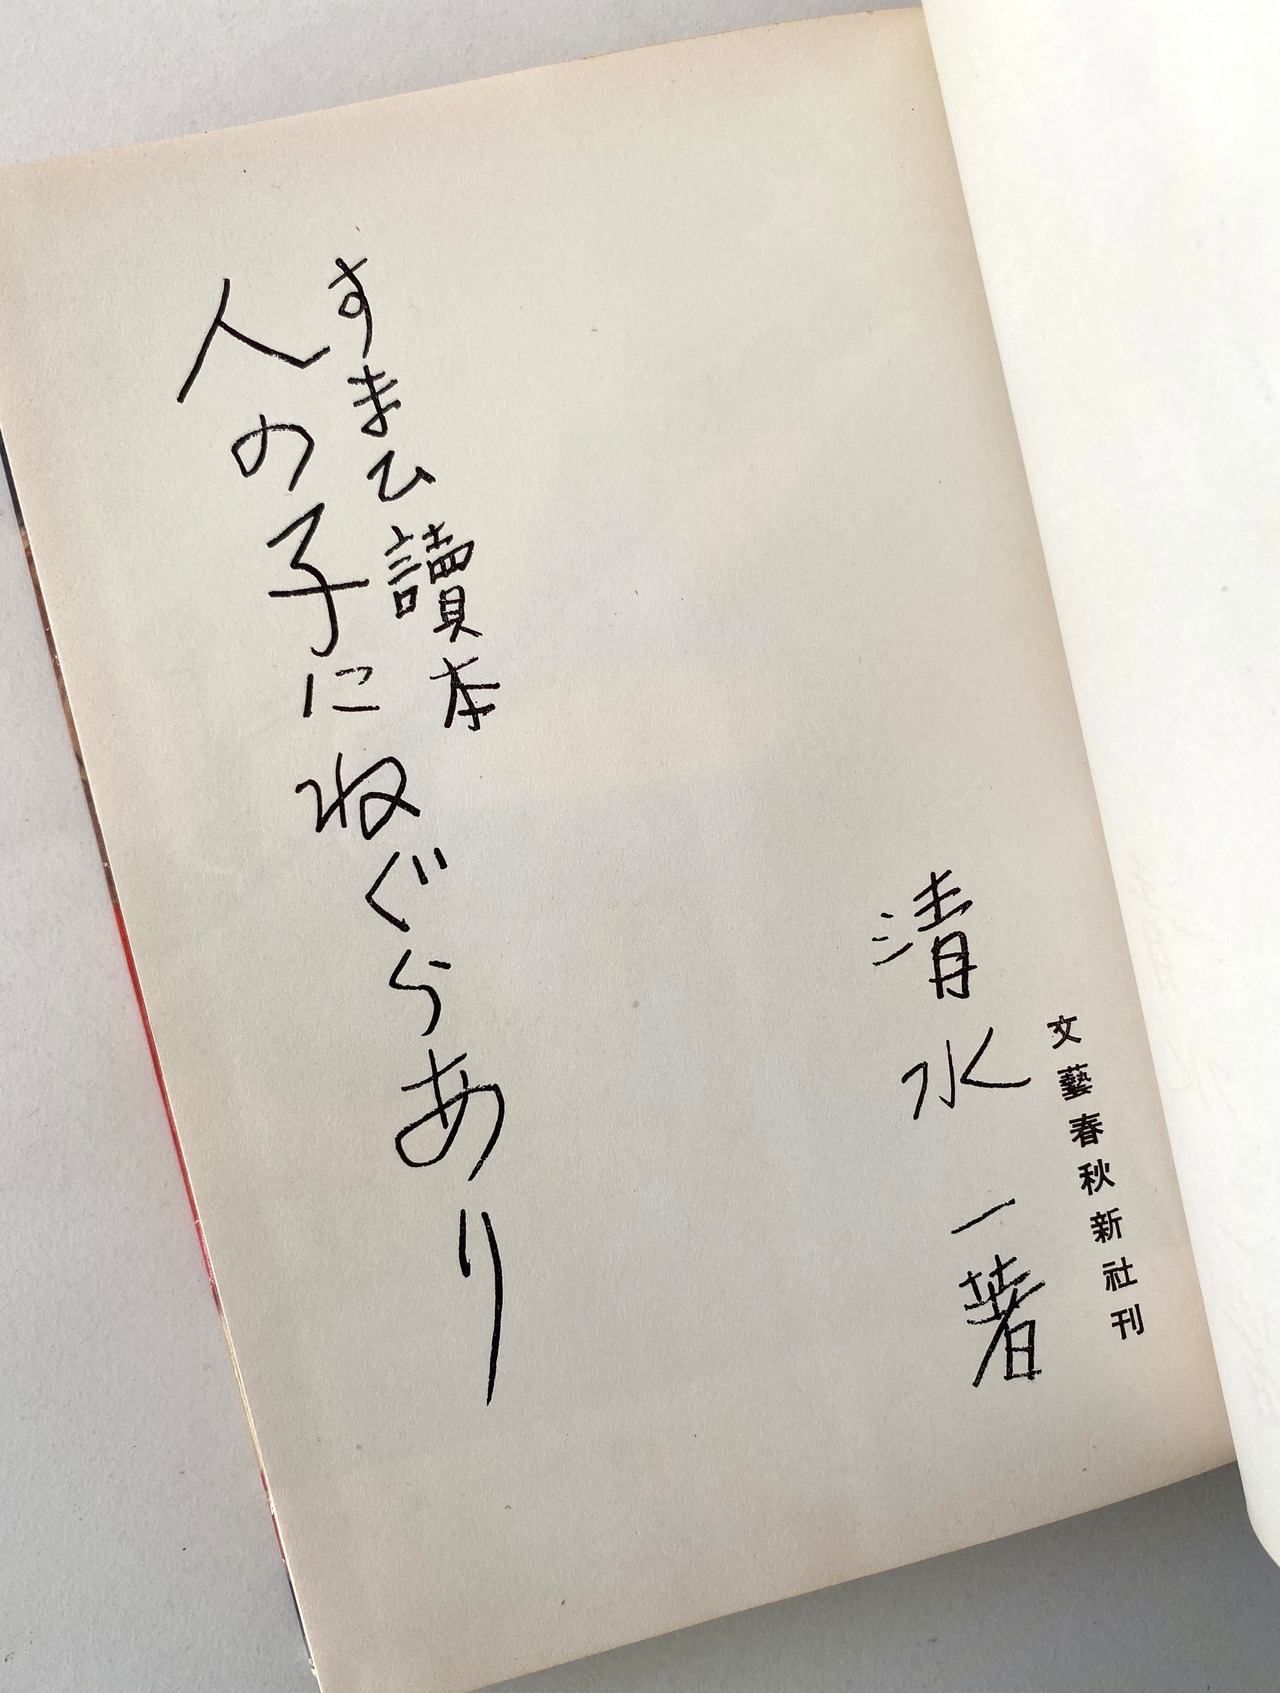 文藝春秋新社刊
清水一著
すまひ讀本
人の子にねぐらあり